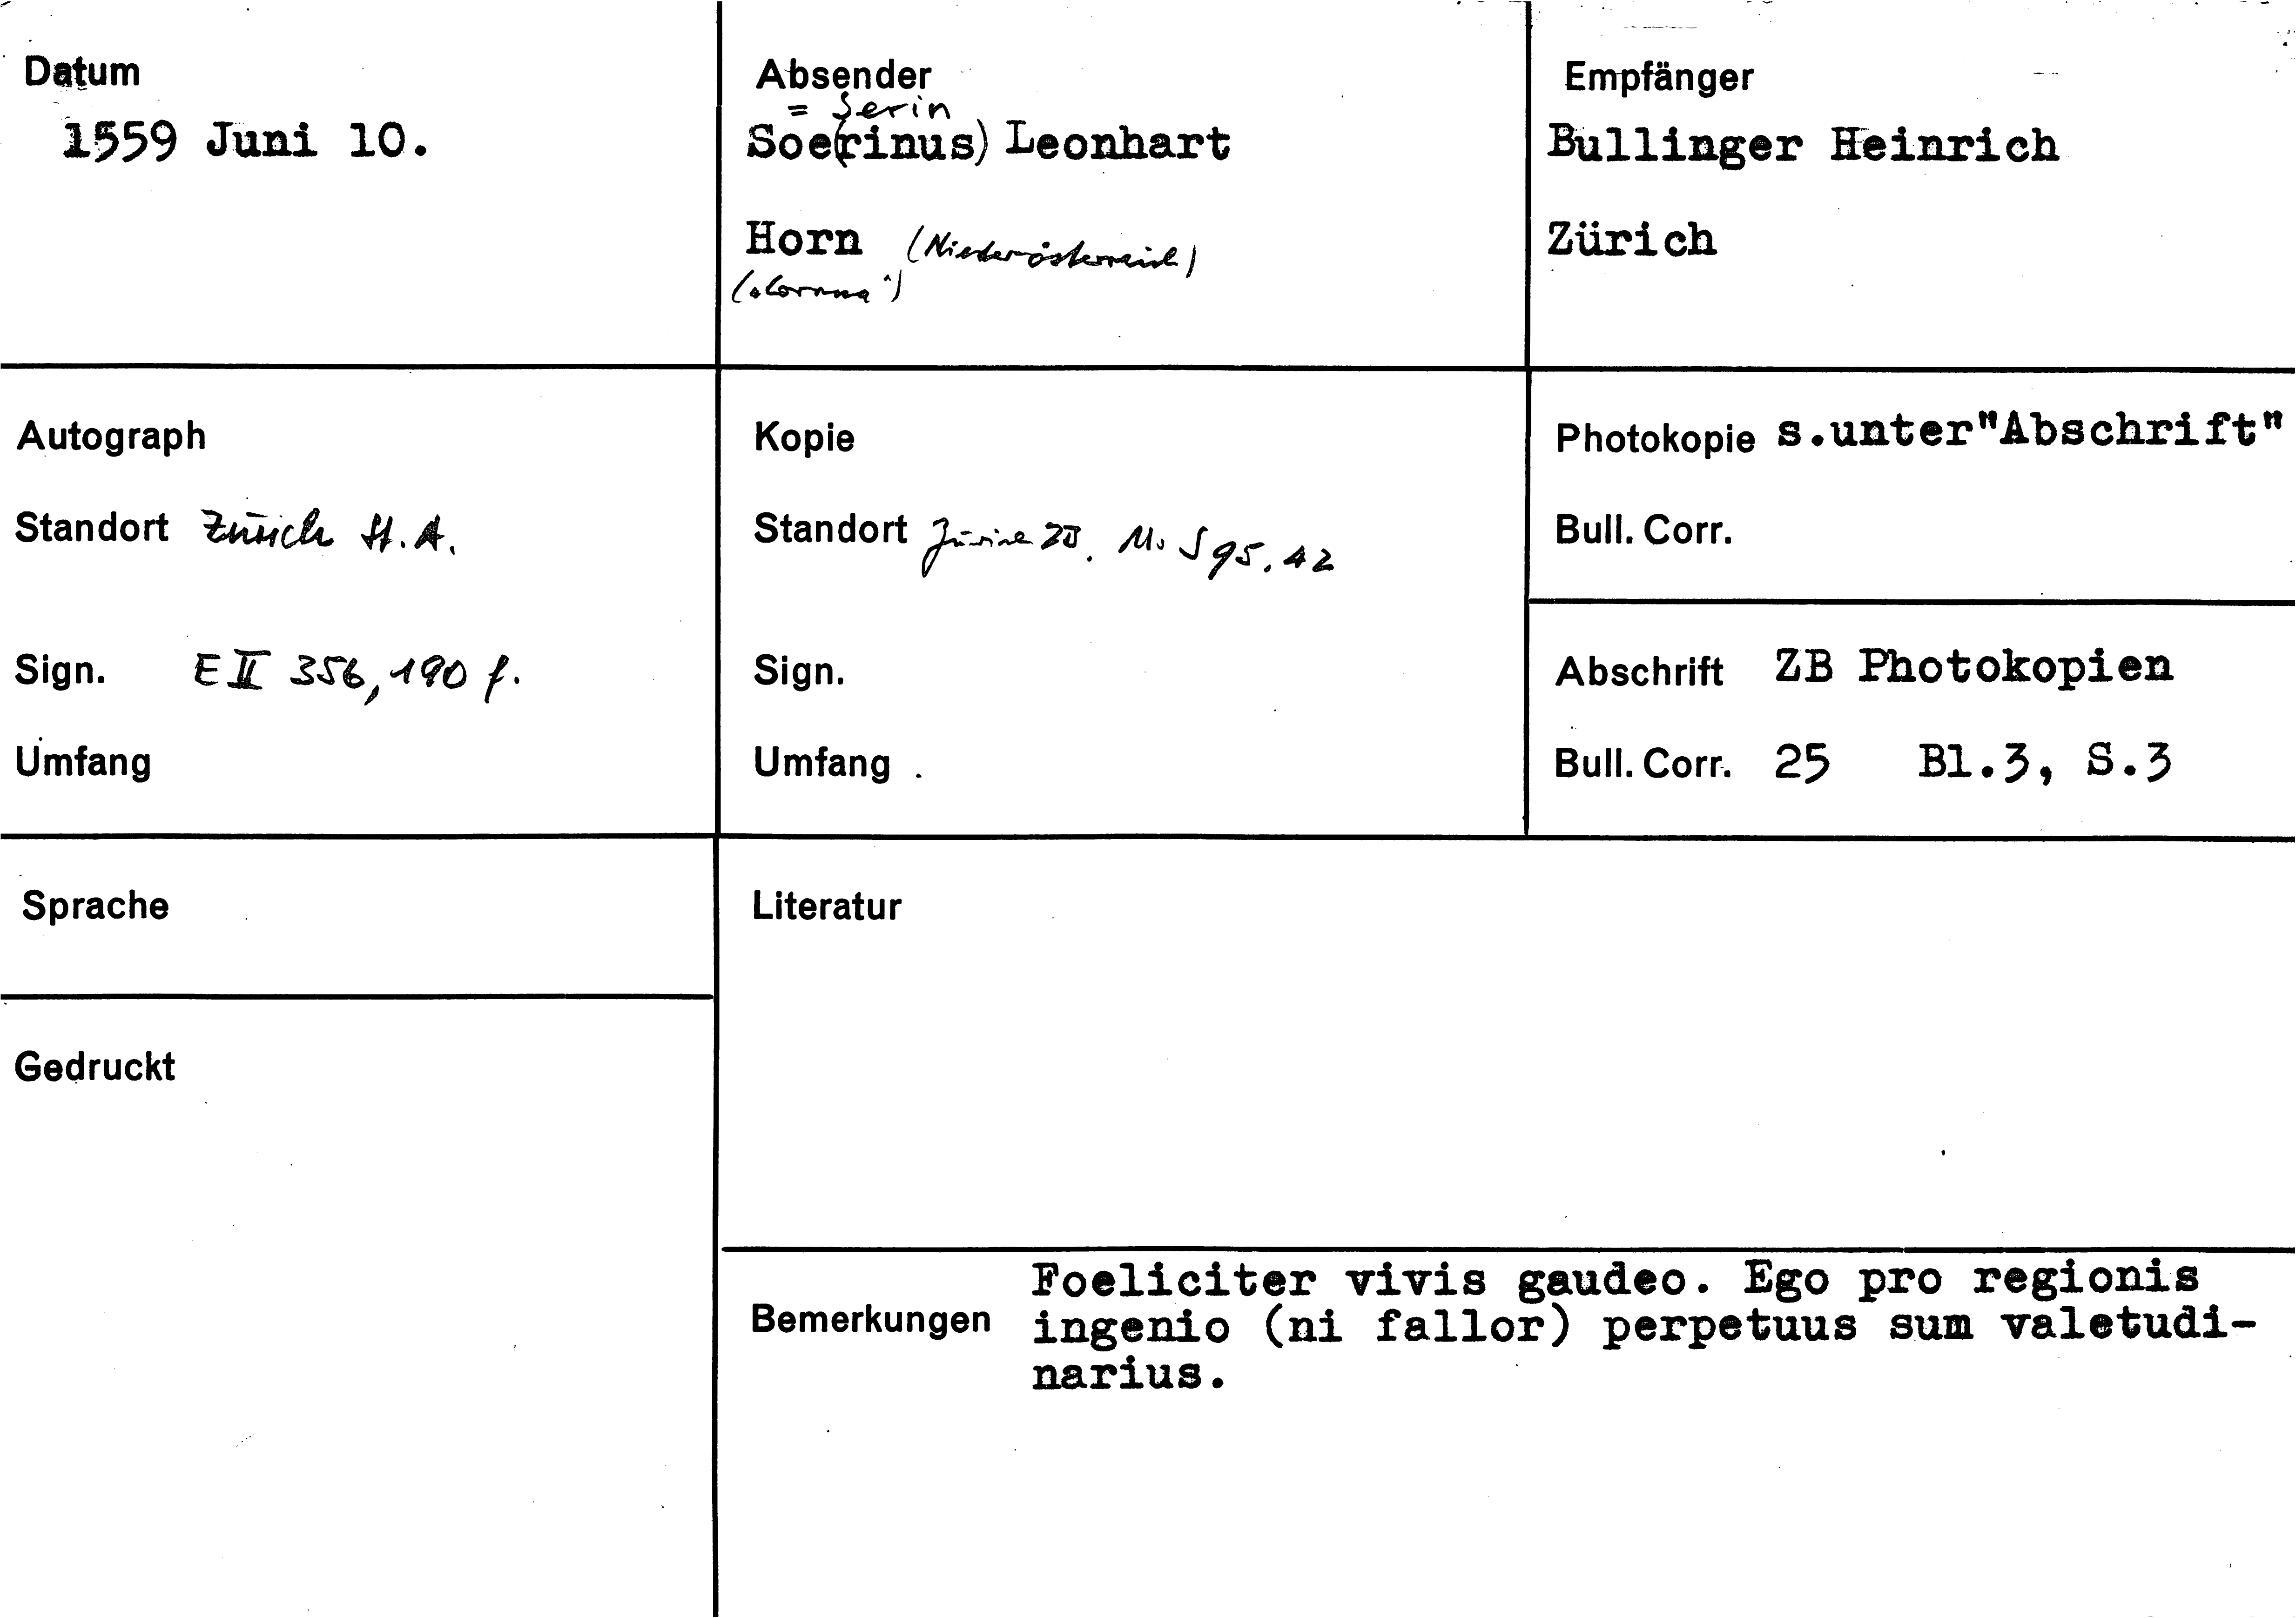 Datum
1559 Juni 10.
Absender
= Serin
Soe(rinus) Leonhart
Horn (Niederösterreich)
Empfänger
Bullinger Heinrich
Zürich
Autograph
Standort Zürich St.A.
Sign. E II 356, 190 f.
Umfang
Kopie
Standort Zürich ZB. Ms S 95, 42
Sign.
Umfang
Photokopie s.unter"Abschrift"
Bull. Corr.
Abschrift ZB Photokopien
Bull. Corr. 25 Bl.3, S.3
Sprache
Gedruckt
Literatur
Bemerkungen
Foeliciter vivis gaudeo. Ego pro regionis
ingenio (ni fallor) perpetuus sum valetudi-
narius.